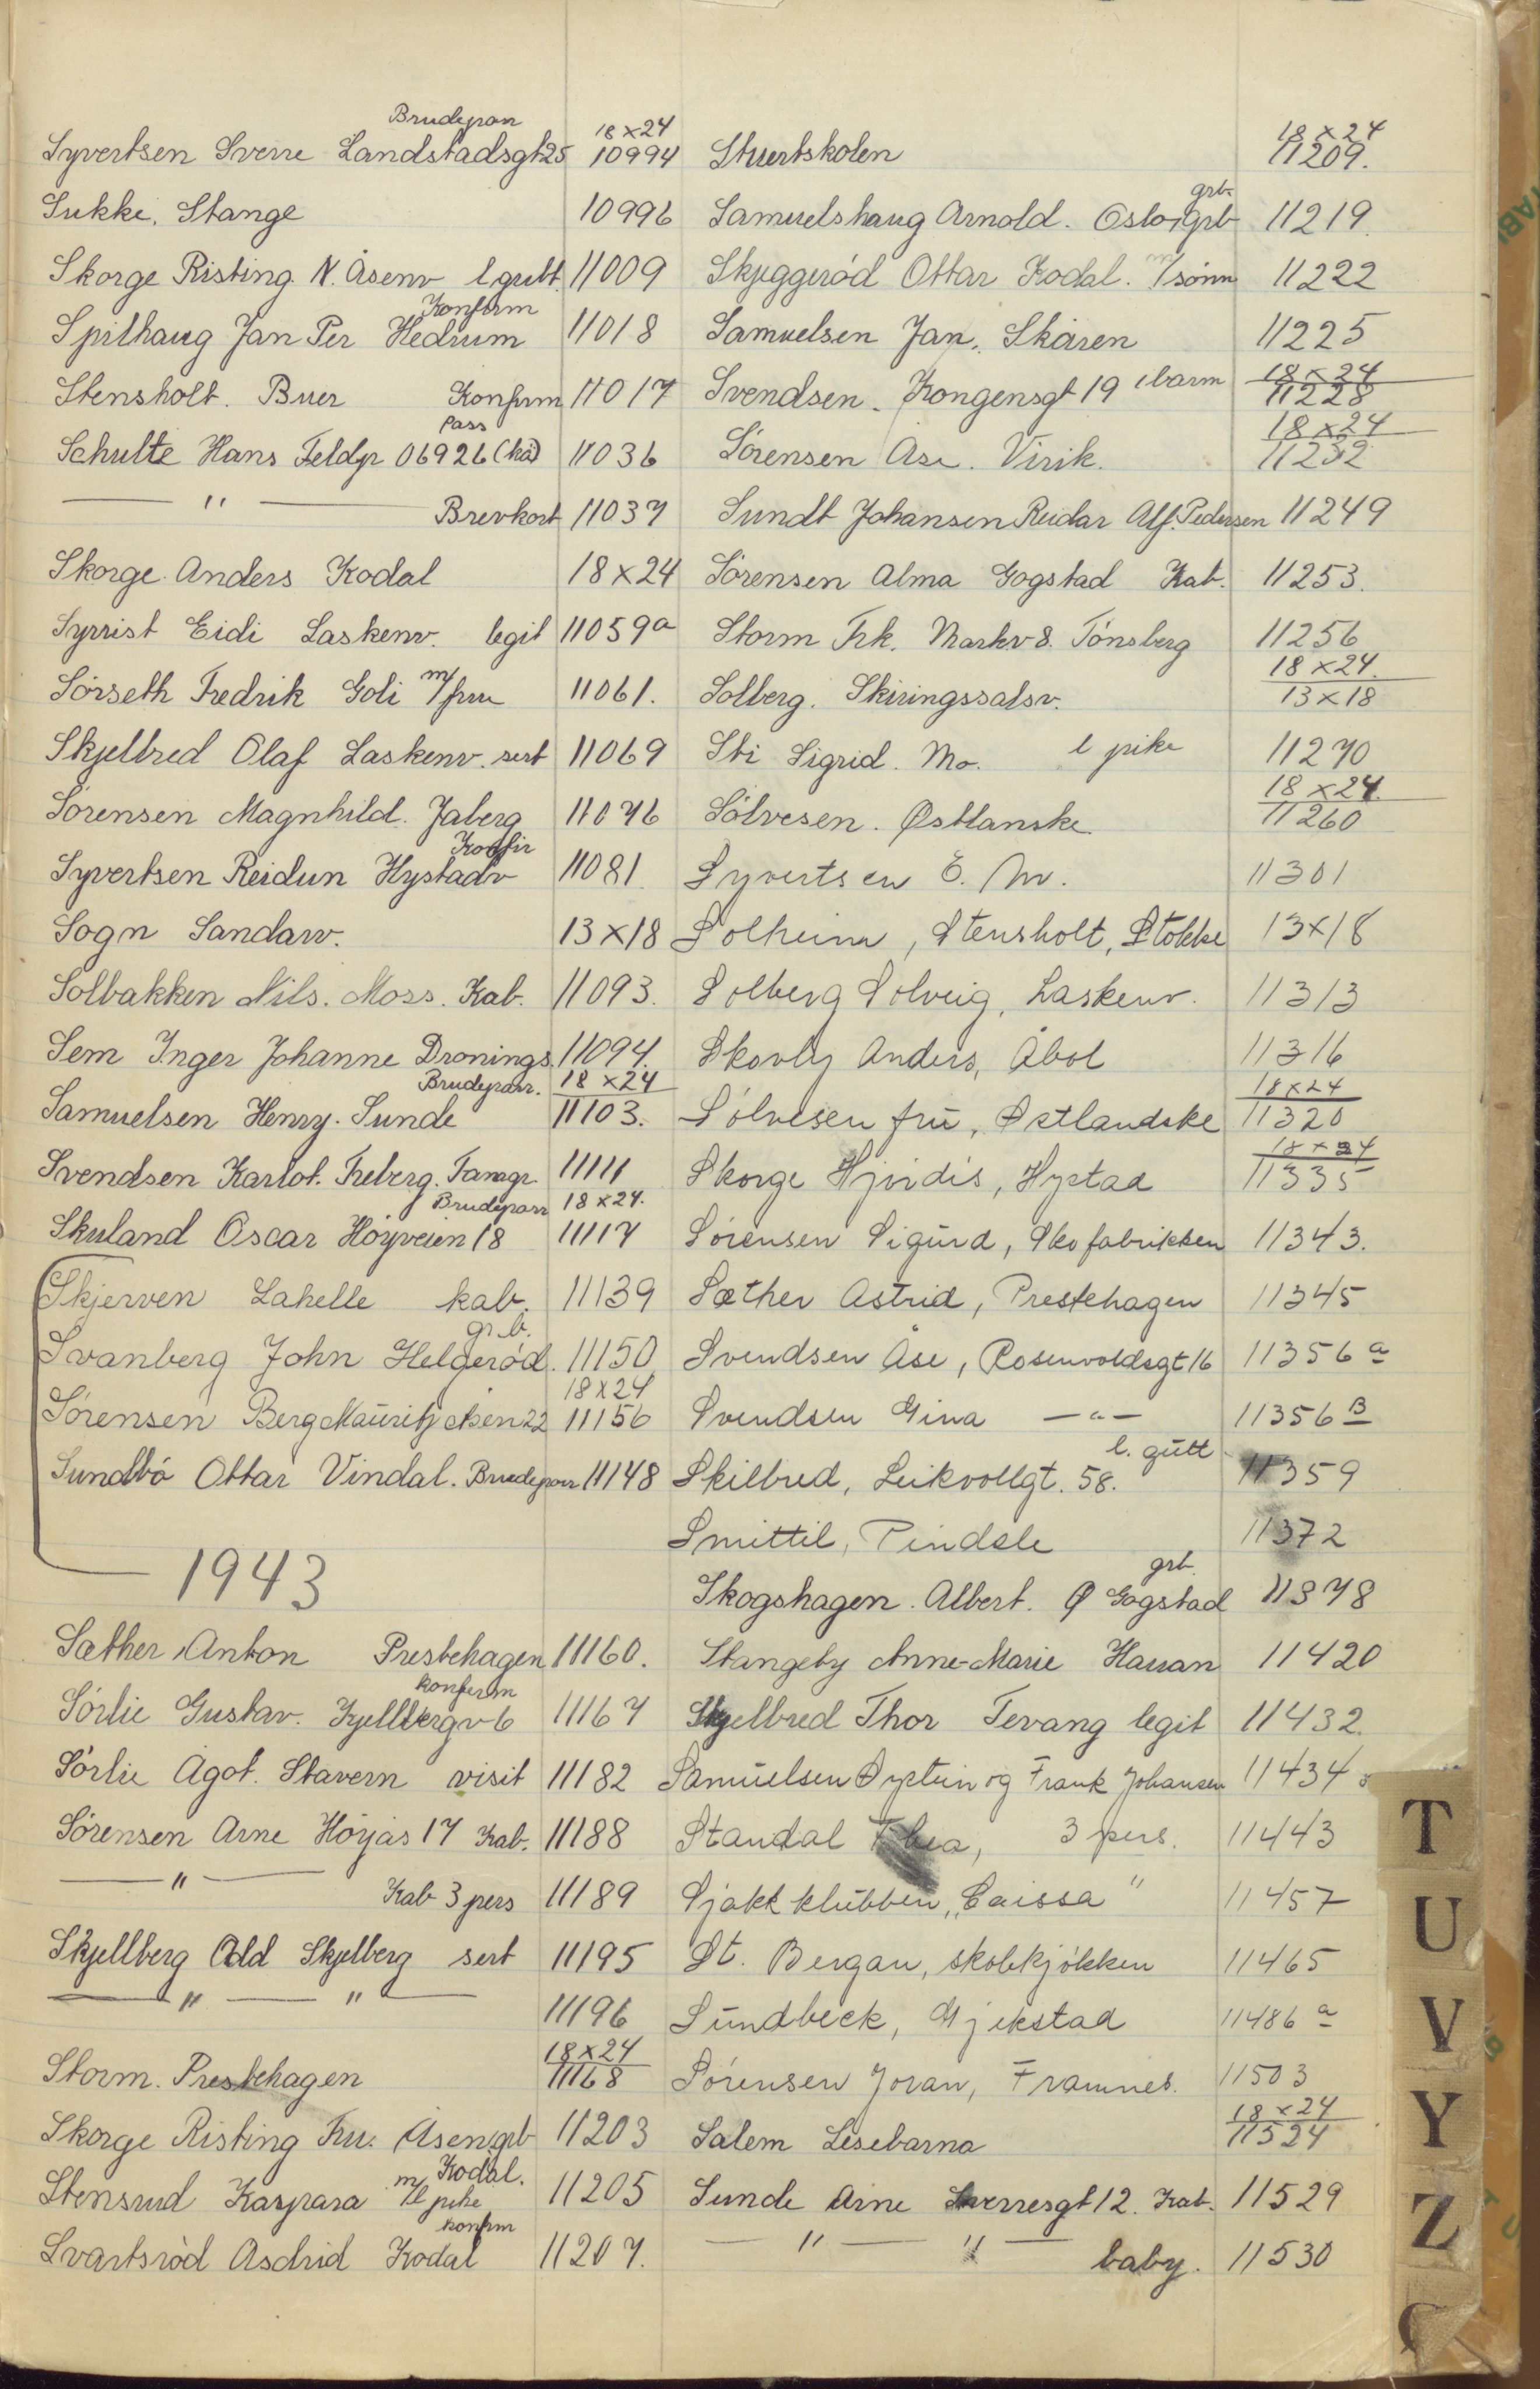 Brudepar 18x24
Syvertsen Sverre Landstadsgt 25 10994
Sukke. Stange 10996
Skorge Risting. N. Åsenv l gutt. 11009
Konfirm
Spilhaug Jan Per Hedrum 11018
Stensholt. Buer Konfirm 11017
Pass
Schulte Hans Feldp 06926 11036
— " — Brevkort 11037
Skorge. Anders Kodal 18x24
Syrrist Eidi Laskenv. legit 11059a
Sörseth Fredrik Goli m/fru 11061.
Skjelbred Olaf Laskenv. sert 11069
Sörensen Magnhild. Jaberg 11076
Konfir
Syvertsen Reidun Hystadv 11081
Sogn Sandarv. 13x18
Solbakken Nils. Moss. Kab. 11093.
Sem Inger Johanne Dronings. 11094.
Brudeparr. 18x24
Samuelsen Henry. Sunde 11103.
Svendsen Karlot. Freberg. Famgr. 11111
Brudeparr 18x24.
Skuland Oscar Höyveien 18 11117
Skjerven Lahelle kab. 11139
gr.b.
Svanberg John Helgeröd. 11150
18x24
Sørensen Berg Mauritz Åsen 22 11156
Sundbö Ottar Vindal. Brudeparr 11148
1943
Sæther Anton Prestehagen 11160.
konferm
Sörlie Gustav. Kjellbergv 6 11167
Sörlie Ågot. Stavern visit 11182
Sörensen Arne Höyjas 17 Kab. 11188
— " — Kab 3 pers 11189
Skjellberg Odd Skjelberg sert 11195
— " — " — 11196
18x24
Storm. Prestehagen 11168
Skorge Risting Fru. Åsen. grb 11203
Kodal.
Stensrud Kaspara m/l pike 11205
konfirm
Svartsröd Asdrid Kodal 11207.
18x24
Stuertskolen 11209.
grb.
Samuelshaug Arnold. Oslo, grb 11219.
Skjeggeröd Ottar Kodal. m/sönn 11222
Samuelsen Jan. Skåren 11225
18x24
Svendsen. Kongensgt 19 1 barn 11228
18x24
Sörensen Åse. Virik. 11232
Sundt Johansen Reidar Alf. Pedersen 11249
Sörensen Alma Gogstad Kab. 11253.
Storm Frk. Markv 8. Tönsberg 11256
18x24.
Solberg. Skiringssalsv. 13x18
Sti Sigrid. Mo. l pike 11270
18x24.
Sölvesen. Østlanske. 11260
Syvertsen E. M. 11301
Solheim, Stensholt, Stokke 13x18
Solberg Solveig, Laskenv. 11313
Skovly Anders, Åbol 11316
18x24
Sølvesen fru, Østlandske 11320
18x24
Skorge Hjördis, Hystad 11335
Sörensen Sigurd, Skofabrikken 11343.
Sæther Astrid, Prestehagen 11345
Svendsen Åse, Rosenvoldsgt 16 11356 a
Svendsen Gina — " — 11356 B
l. gutt
Skilbred, Leikvollgt. 58. 11359
Smittil, Pindsle 11372
grb.
Skogshagen. Albert. Ø Gogstad 11378
Stangeby Anne-Marie Haua 11420
Skjelbred Thor Tevang legit 11432.
Samuelsen Øystein og Frank Johansen 11434
Standal Thea, 3 pers. 11443
Sjakk klubben „Caissa" 11457
St. Bergan, skolekjökken 11465
Sundbeck, Gjekstad 11486 a
Sörensen Joran, Framnes. 11503
18x24
Salem Lesebarna 11524
Sunde Arne Sverresgt 12. Kab. 11529
— " — " — baby. 11530
T
U
V
Y
Z